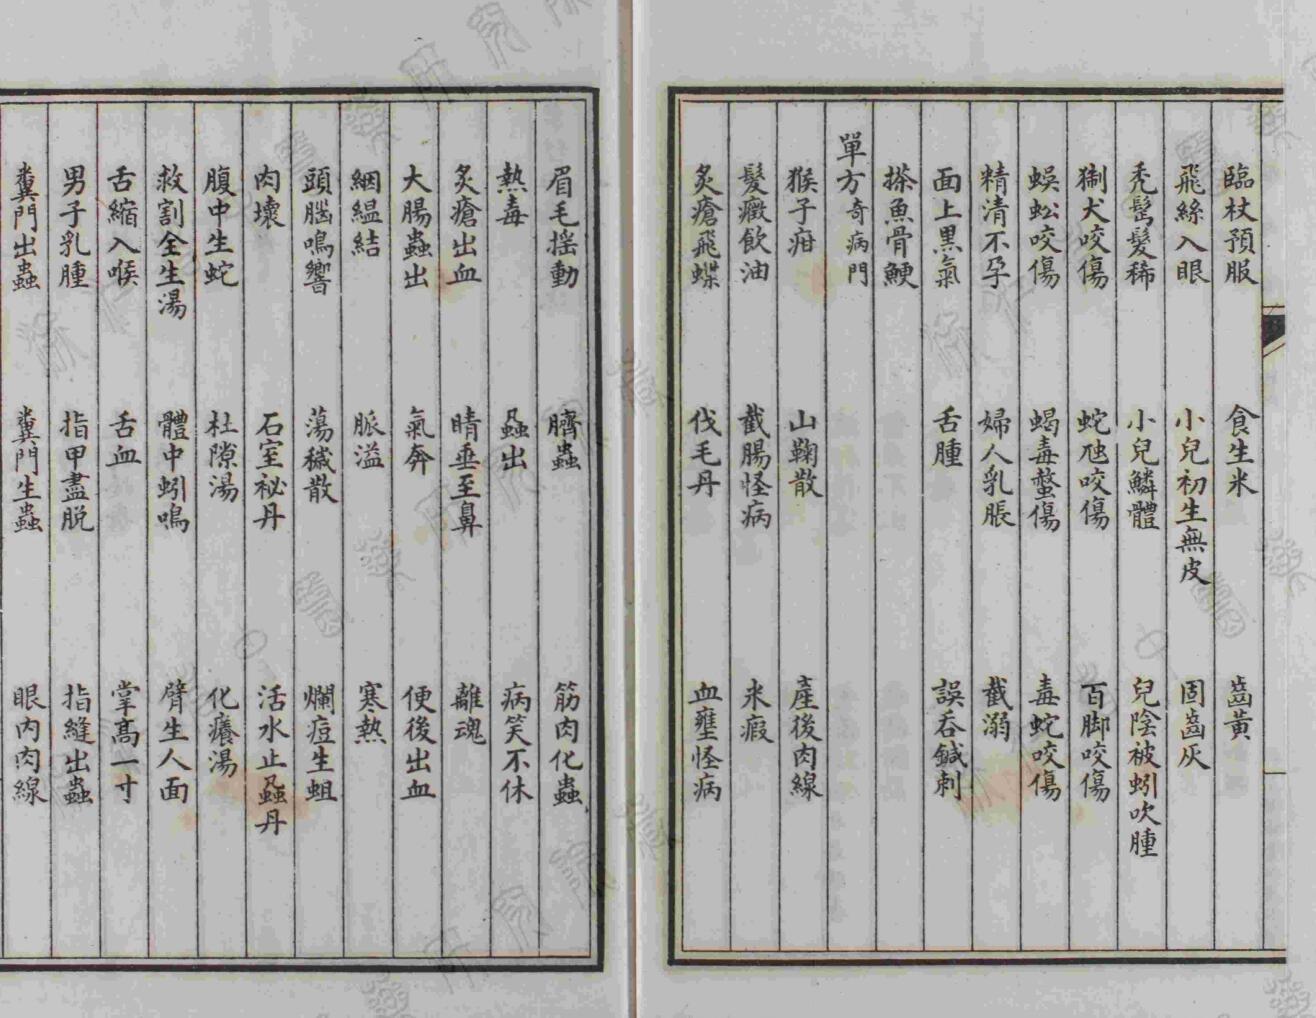 臨杖預服 食生米 齒黃
飛絲入眼 小兒初生無皮 固齒灰
禿髩髮稀 小兒鱗體 兒陰被蚓吹腫
猘犬咬傷 蛇虺咬傷 百脚咬傷
蜈蚣咬傷 蝎毒螫傷 毒蛇咬傷
精清不孕 婦人乳脹 截溺
面上黒氣 舌腫 誤吞鍼刺
搽魚骨鯁
單方奇病門
猴子疳 山鞠散 產後肉線
髮癥飲油 截腸怪病 米瘕
炙瘡飛蝶 伐毛丹 血壅怪病
眉毛搖動 臍蟲 筋肉化蟲
熱毒 蝨出 病笑不休
炙瘡出血 睛垂至鼻 離魂
大腸蟲出 氣奔 便後出血
絪縕結 脈溢 寒熱
頭腦鳴響 蕩穢散 爛痘生蛆
肉壞 石室祕丹 活水止蝨丹
腹中生蛇 杜隙湯 化癢湯
救割全生湯 體中蚓鳴 臂生人面
舌縮入喉 舌血 掌高一寸
男子乳腫 指甲盡脫 指縫出蟲
糞門出蟲 糞門生蟲 眼內肉線